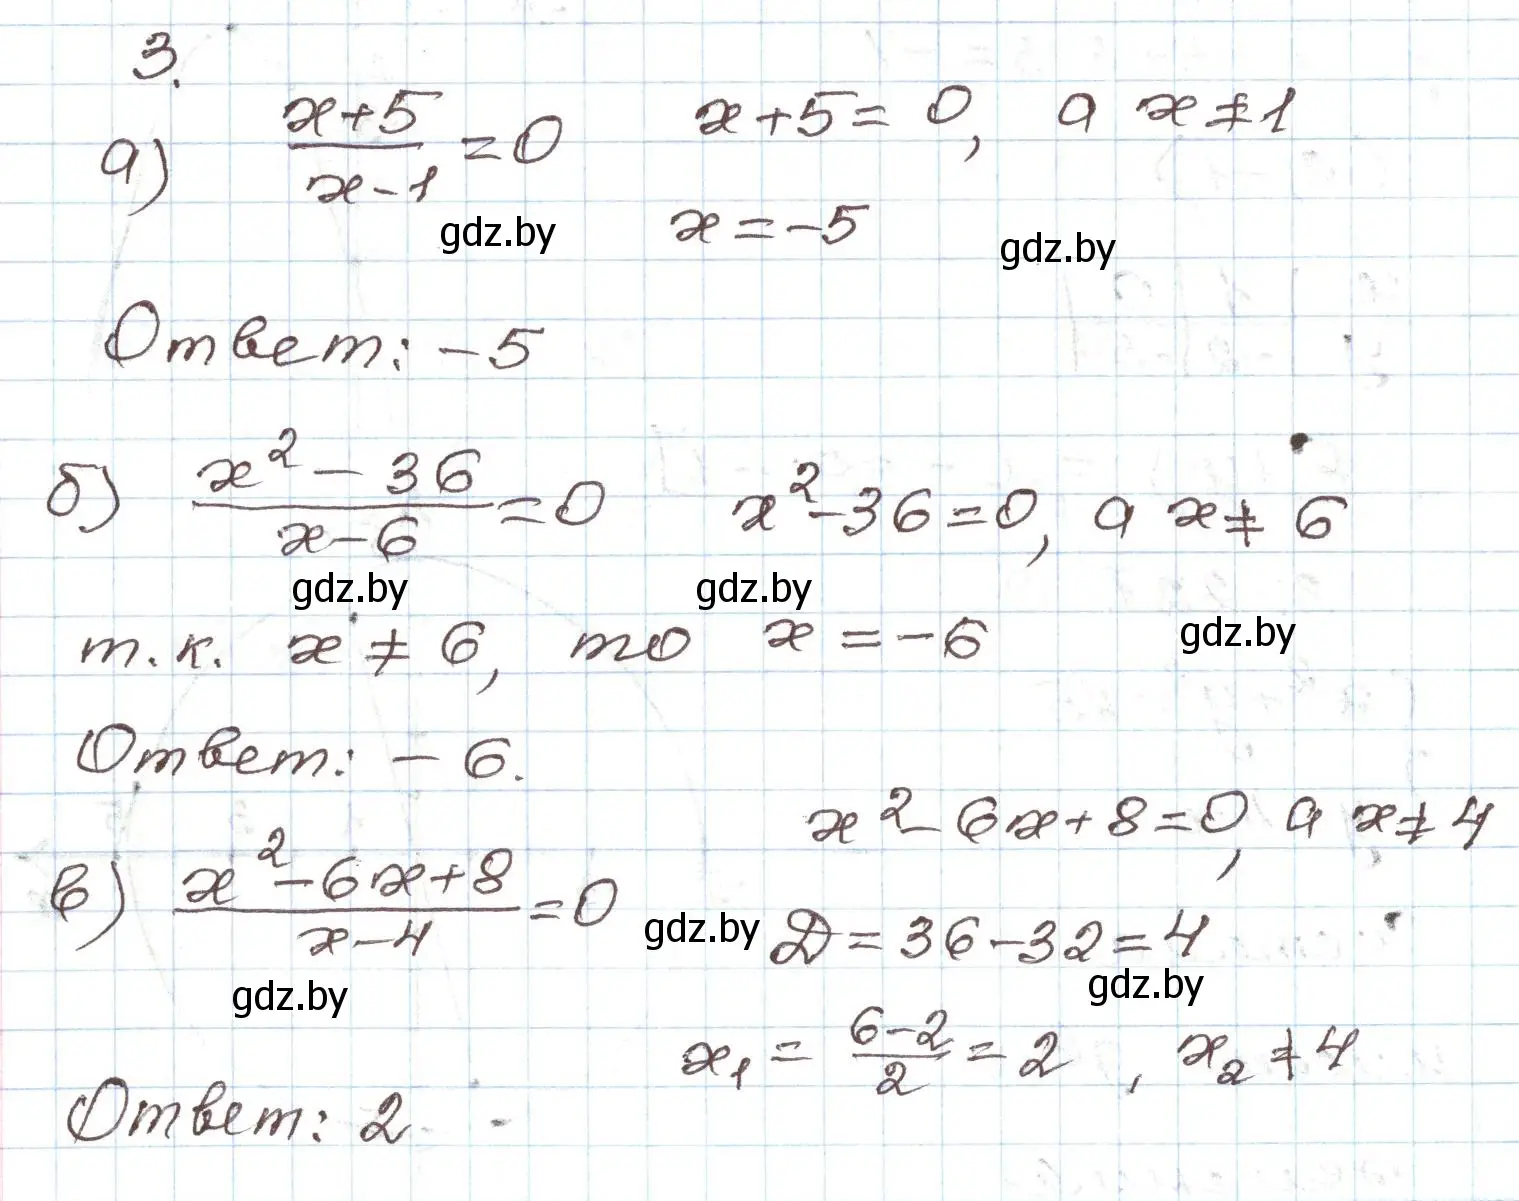 3.
а) (x+5)/(x-1) = 0   x+5=0, а x≠1
gdz.by   x = -5   gdz.by
Ответ: -5
б) (x² - 36)/(x-6) = 0   x² - 36 = 0, а x ≠ 6
gdz.by   gdz.by
т.к. x ≠ 6, то x = -6   gdz.by
Ответ: - 6.
x² - 6x + 8 = 0, а x ≠ 4
в) (x² - 6x + 8)/(x-4) = 0   gdz.by   D = 36 - 32 = 4
gdz.by   gdz.by
x₁ = (6-2)/2 = 2 , x₂ ≠ 4
Ответ: 2